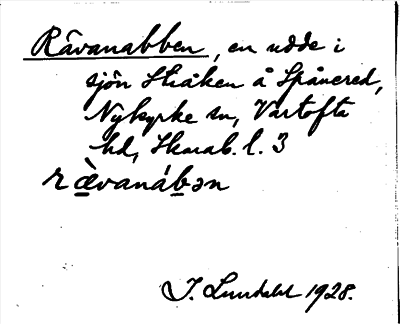 Råvanabben, en udde i
sjön Stråken å Spånered,
Nykyrke sn, Vartofta
hd, Skarab. l. 3
ræ̀vanábən
J. Lundahl 1928.